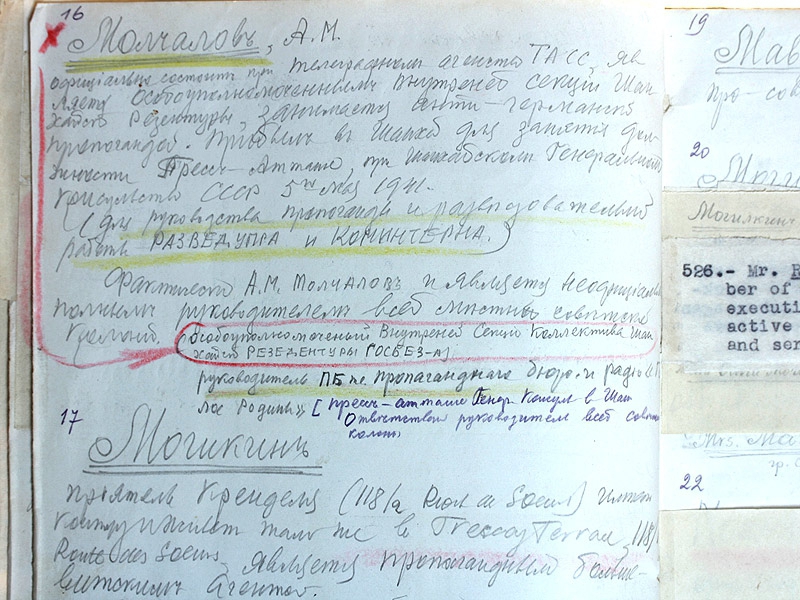 16
Молчаловъ, А.М.
официально состоитъ при телеграфномъ агентствѣ ТАСС, яв
ляется Особоуполномоченнымъ Внутреней секции Шан
хайской Резедентуры, занимается анти-германской
пропогандой. Прибылъ въ Шанхай для занятия дол
жности Прессъ-Атташе, при Шанхайскомъ Генеральном
Консульстве СССР 5го мая 1941.
(для руководства пропоганды и разведовательный
работы РАЗВЕДУПРА и КОМИНТЕРНА.)
Фактически А.М. Молчаловъ и является неофициаль
полнымъ руководителемъ всей местной советской
колонии. (Особоуполномоченый Внутреней Секции Коллектива Шан
хайской РЕЗЕДЕНТУРЫ ГОСБЕЗ-А)
руководитель ПБ пропоганднаго бюро и радио
лос Родины» [Прессъ-атташе Генер Консул в Шан
Ответствен руководителем всей совет
колонии
17
Могикинъ
приятель Кренделя (118/a Rout de Soeurs)
Контру живет там же в Trescoy Terrace, 118/
Route des Soeurs, является пропогандным больше-
витскимъ агентом.
19
Мав
про-сов
20
Моги
Могилкинъ
526.- Mr. R
ber of
executi
active
and ser
Mrs. Ma
22